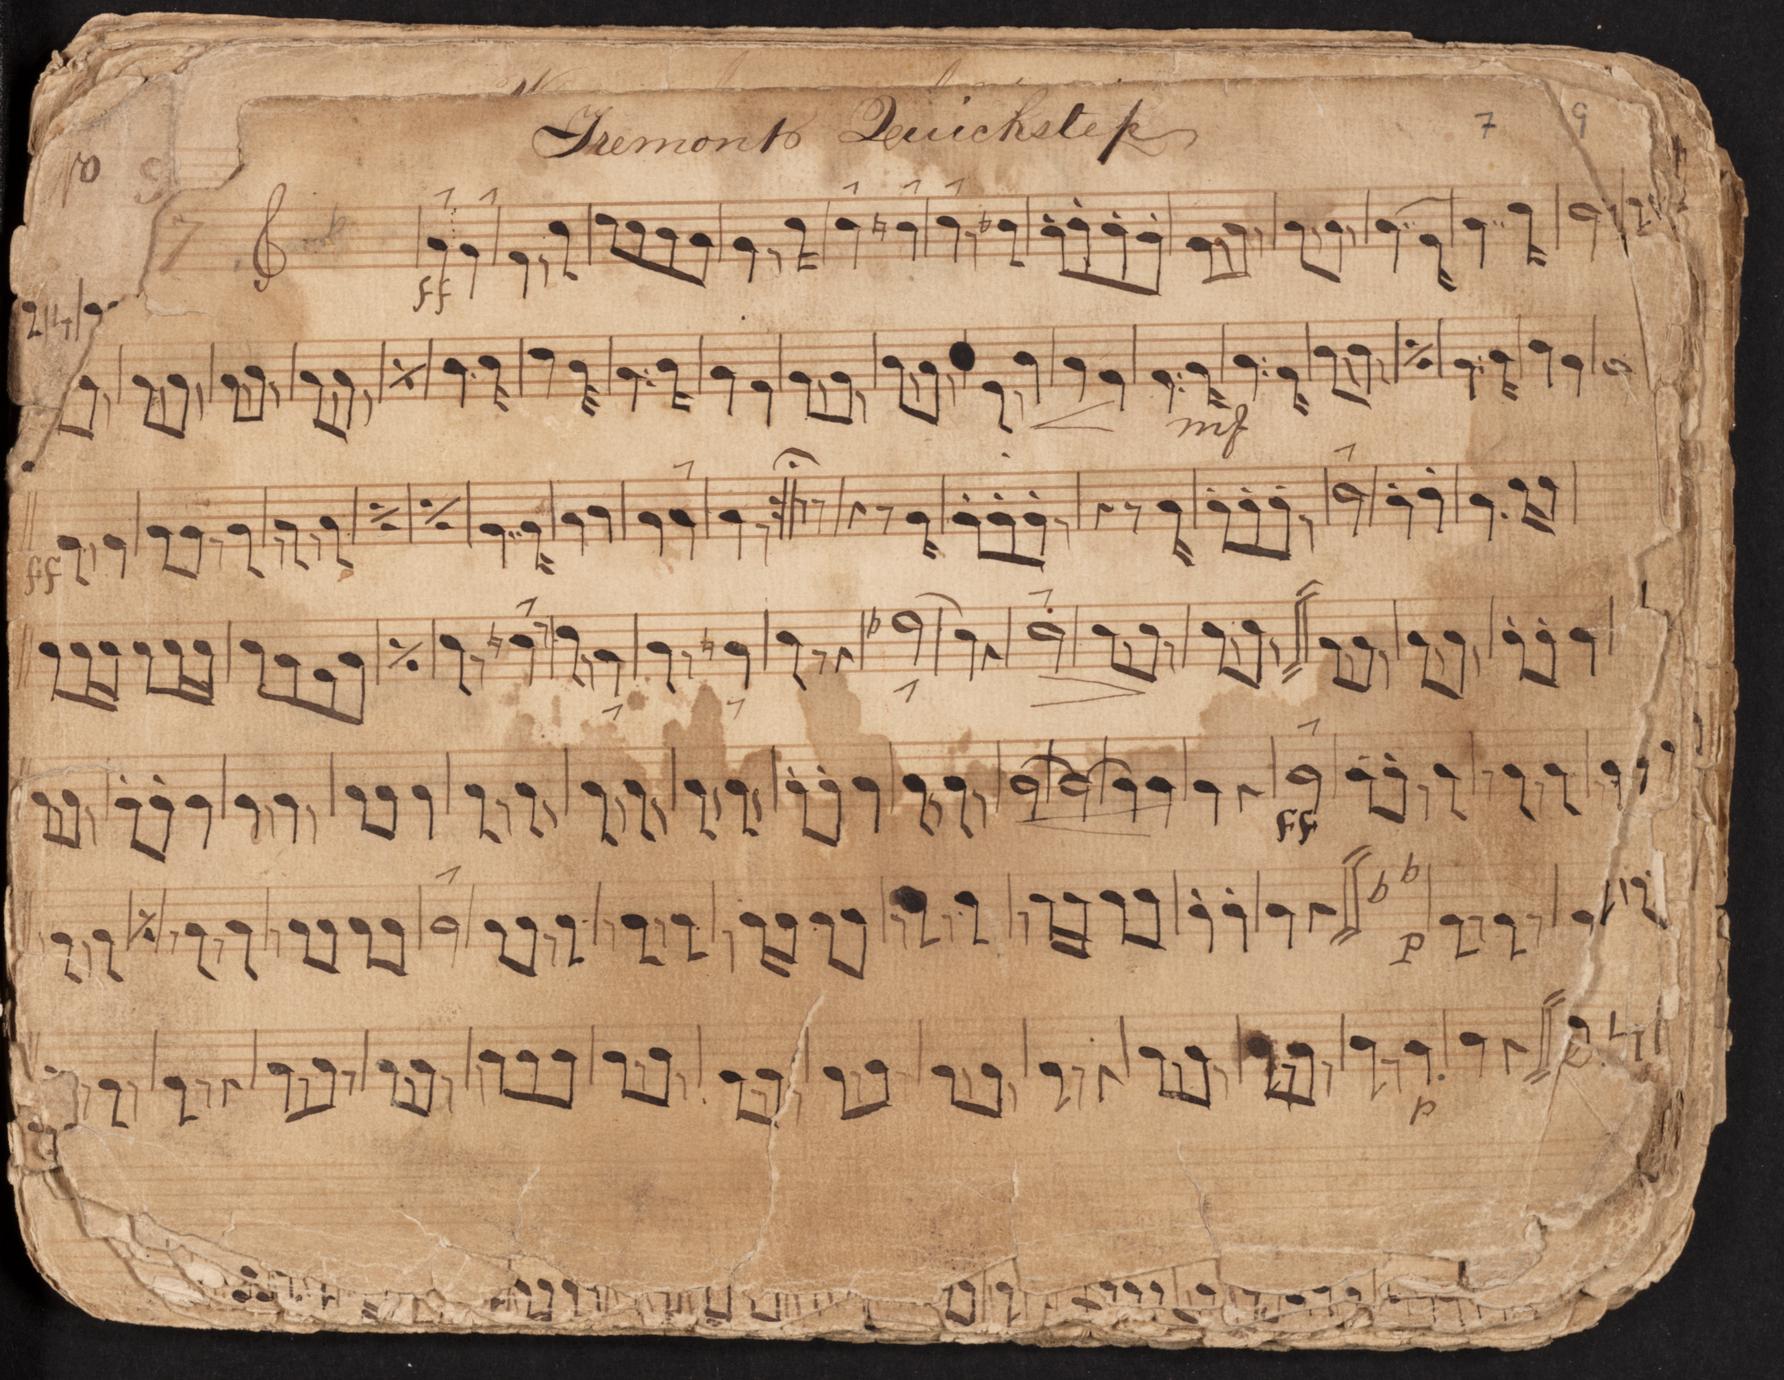 Tremont Quickstep
7 9
ff
mf
ff
ff
p
p